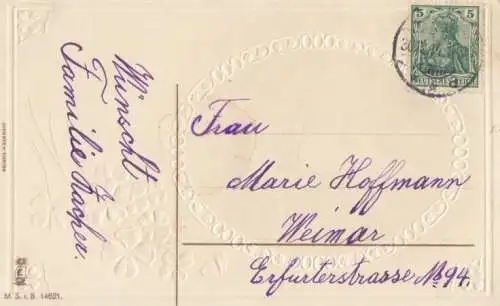 Wünscht
Familie Kacher.
5
5
DEUTSCHES REICH
Frau
Marie Hoffmann
Weimar
Erfurterstrasse No 94.
M. S. i. B. 14621.